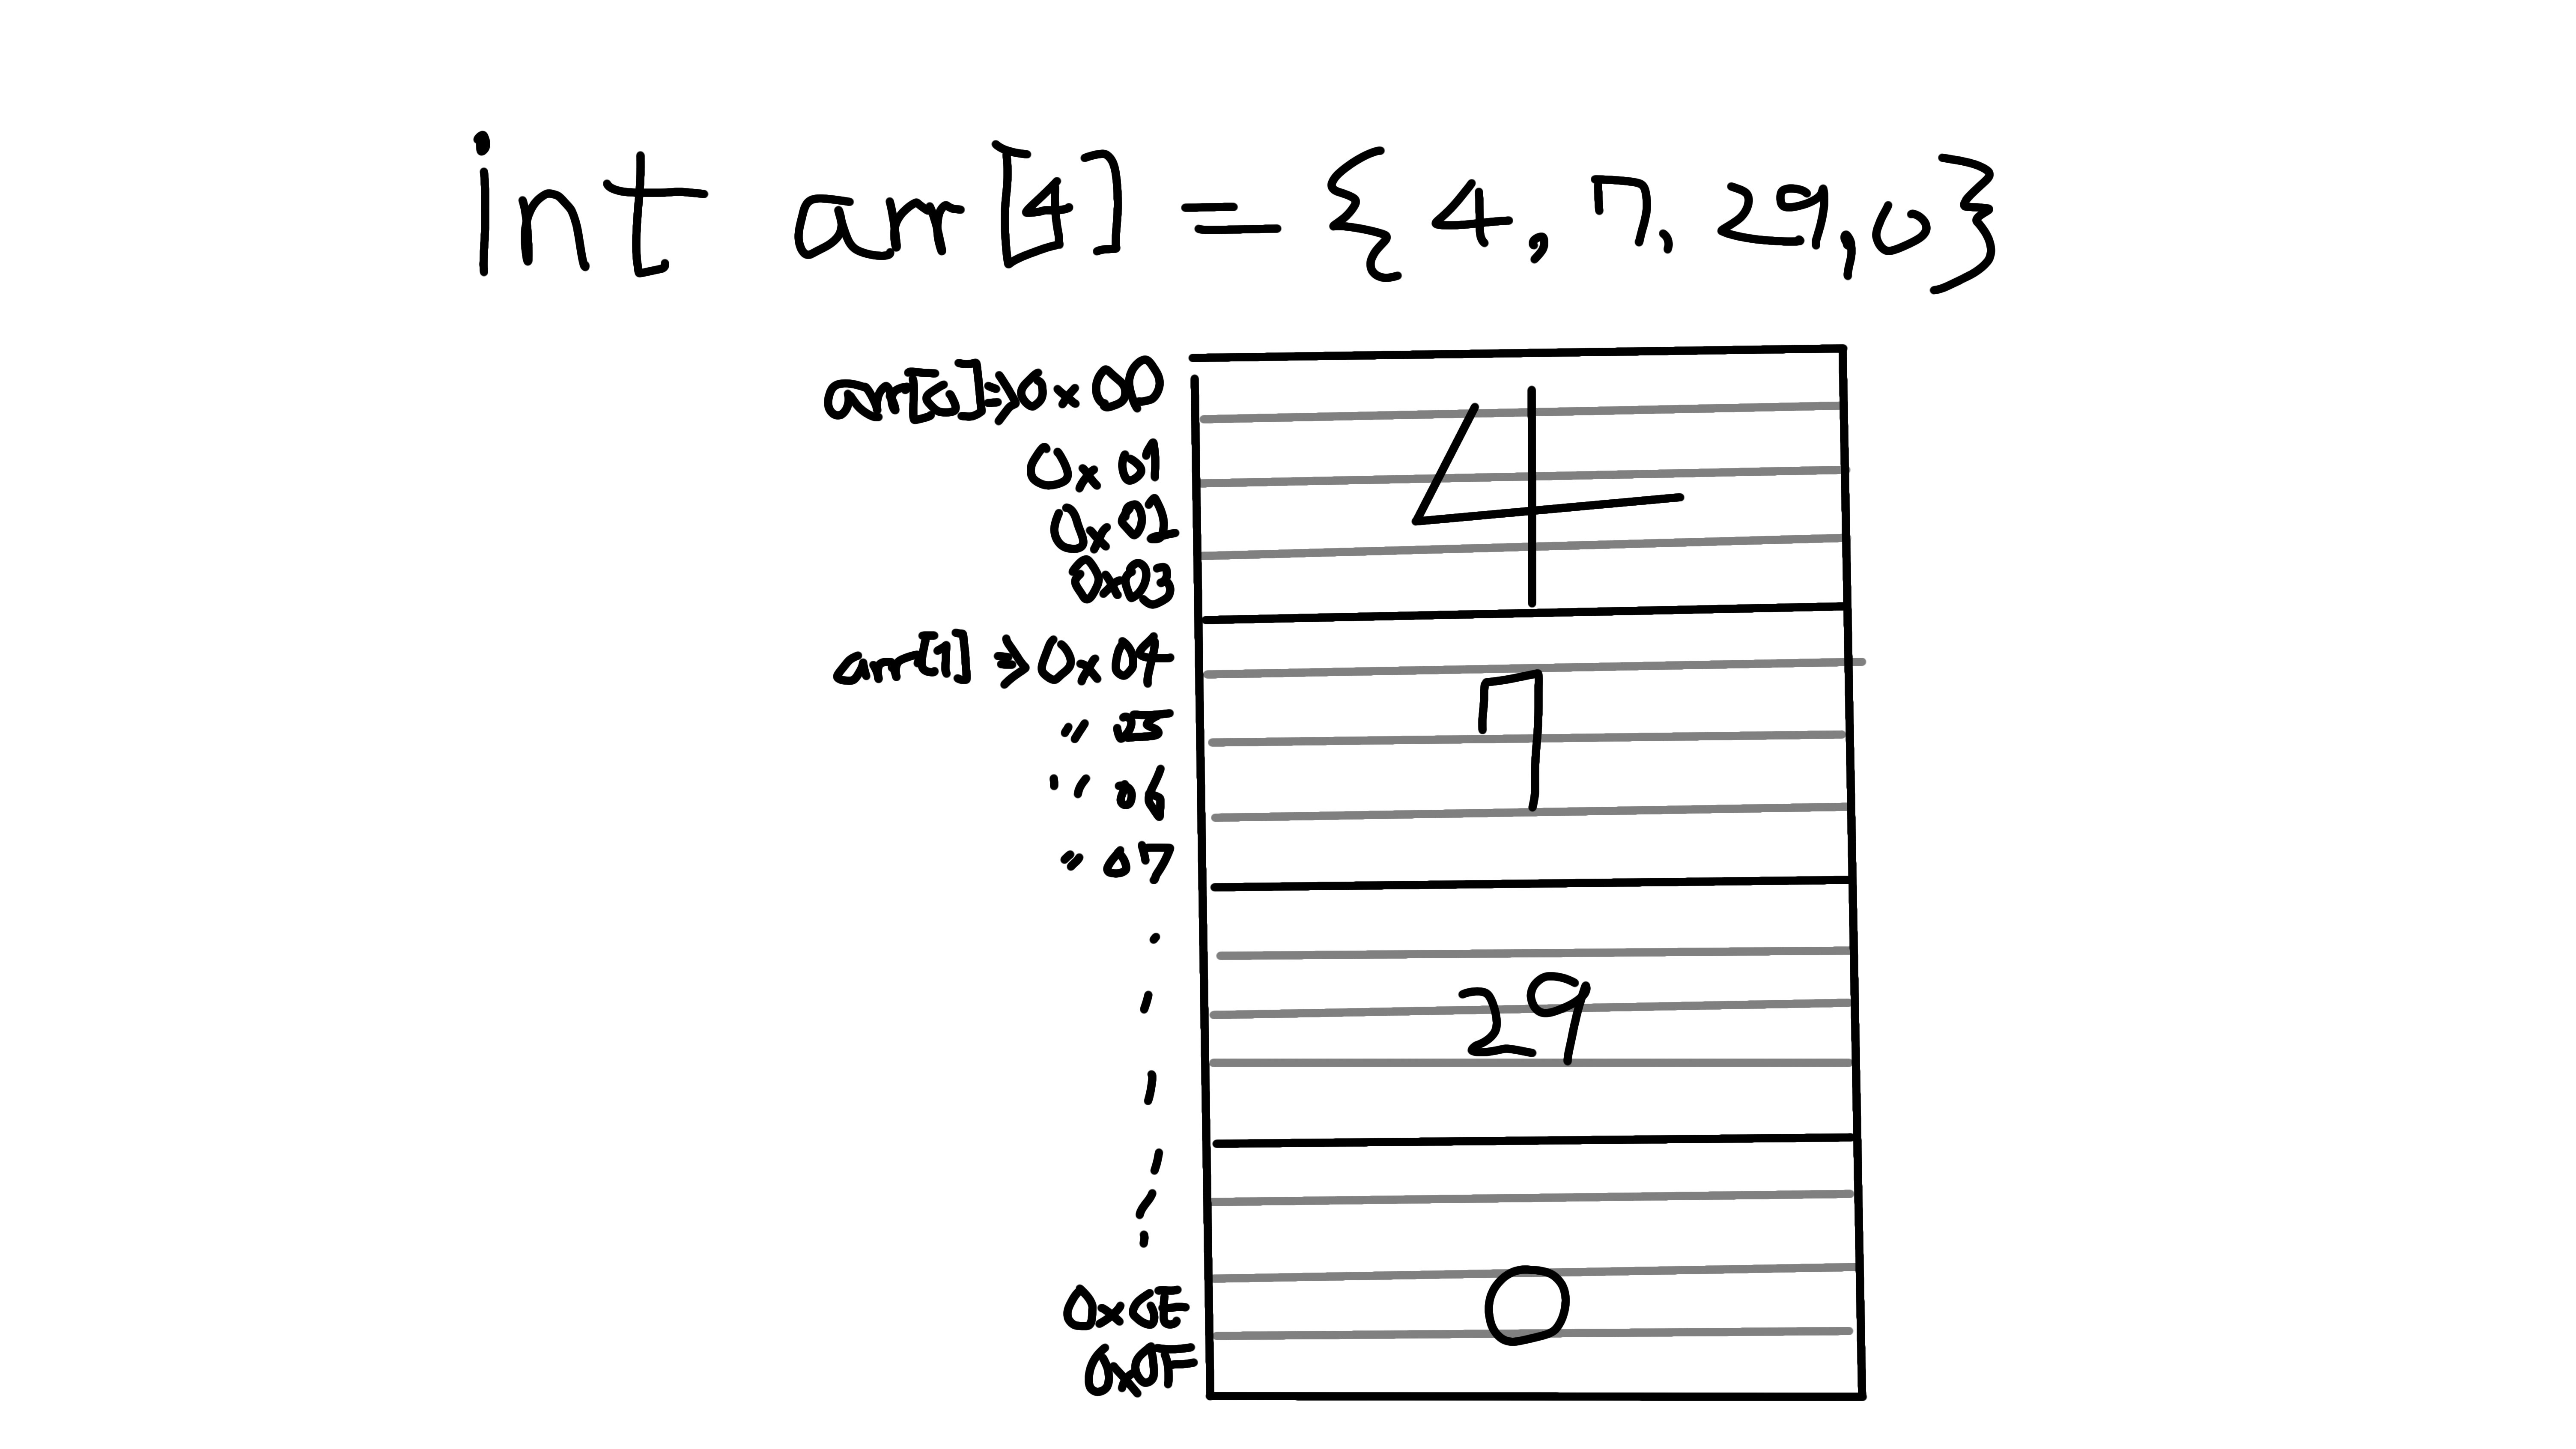 int arr[4] = {4, 7, 29, 0}
arr[0] ⇒ 0x00
0x01
4
0x02
0x03
arr[1] ⇒ 0x04
" 05
7
" 06
" 07
29
0x0E
0
0x0F